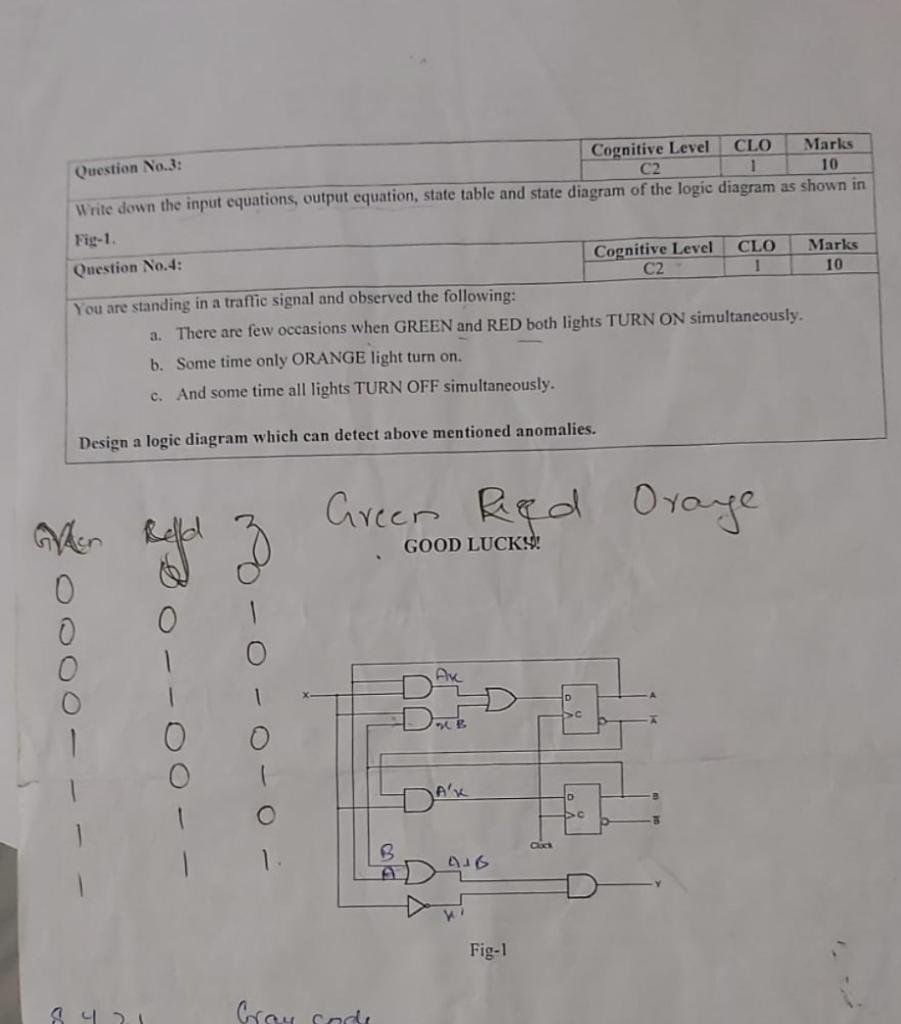 Question No.3:
Cognitive Level CLO Marks
C2 1 10
Write down the input equations, output equation, state table and state diagram of the logic diagram as shown in
Fig-1.
Question No.4:
Cognitive Level CLO Marks
C2 1 10
You are standing in a traffic signal and observed the following:
a. There are few occasions when GREEN and RED both lights TURN ON simultaneously.
b. Some time only ORANGE light turn on.
c. And some time all lights TURN OFF simultaneously.
Design a logic diagram which can detect above mentioned anomalies.
Green Orange
GOOD LUCK!!!
0 0 0
0 0 1
0 1 0
0 1 1
1 0 0
1 0 1
1 1 0
1 1 1
X
Ax
xB
D
C
A
A
A'x
D
C
B
B
Clock
B
A
A+B
x'
Y
Fig-1
8 4 2 1 Gray code